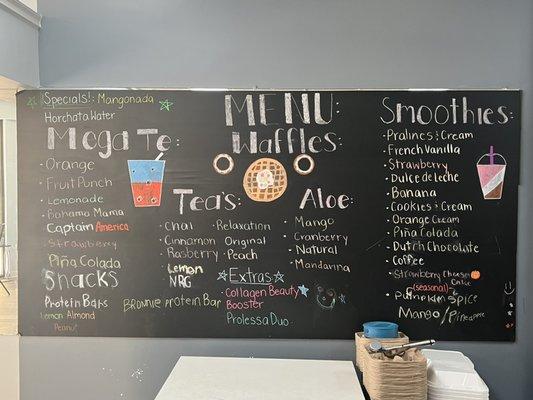 Specials!: Mangonada
Horchata Water
Mega Te:
· Orange
· Fruit Punch
· Lemonade
· Bahama Mama
· Captain America
· Strawberry
· Piña Colada
Snacks
Protein Bars
Lemon Almond
Peanut
Brownie Protein Bar
MENU:
Waffles:
Tea's:
· Chai
· Cinnamon
· Rasberry
· Lemon
NRG
· Relaxation
· Original
· Peach
Aloe:
· Mango
· Cranberry
· Natural
· Mandarina
Extras
Collagen Beauty
Booster
Prolessa Duo
Smoothies:
· Pralines & Cream
· French Vanilla
· Strawberry
· Dulce de leche
· Banana
· Cookies & Cream
· Orange Cream
· Piña Colada
· Dutch Chocolate
· Coffee
· Strawberry Cheesecake
(seasonal)
· Pumpkin Spice
· Mango/Pineapple